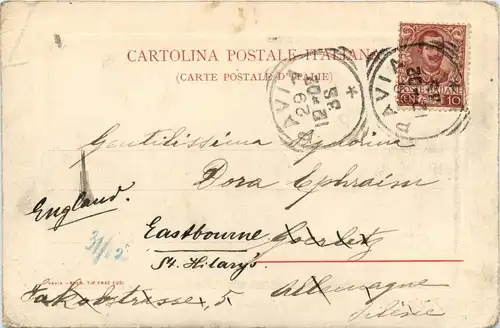 CARTOLINA POSTALE ITALIANA
(CARTE POSTALE D'ITALIE)
POSTE ITALIANE
CENT. 10
PAVIA
29
12-03
3 S
PAVIA
Gentilissima Signorina
Dora Ephraim
England.
Eastbourne Goerlitz
St. Hilary's
31/12
PAVIA TIP. FRAT. FUSI
Jakobstrasse, 5 Allemagne
Silésie